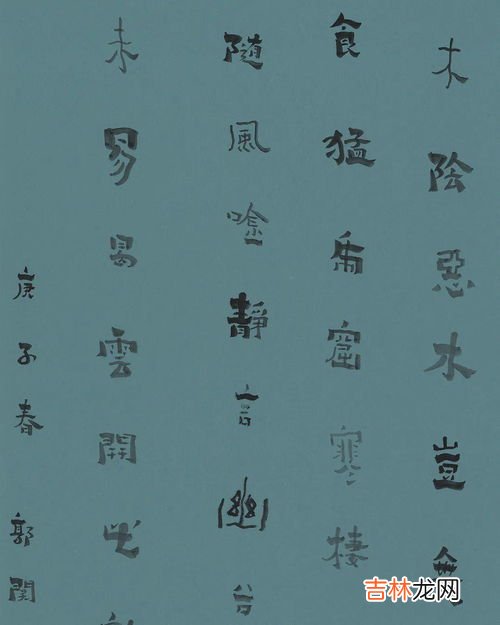 木陰惡木豈無
食猛虎窟寒棲
隨風唫靜言幽谷
未易曷雲開此
庚子春 郭
吉林龙网